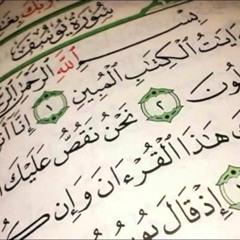 سُورَةُ يُوسُفَ
بِسْمِ اللَّهِ الرَّحْمَٰنِ
ءَايَٰتُ الْكِتَٰبِ الْمُبِينِ ١ إِنَّا
٢ نَحْنُ نَقُصُّ عَلَيْكَ
هَٰذَا الْقُرْءَانَ وَإِن
إِذْ قَالَ